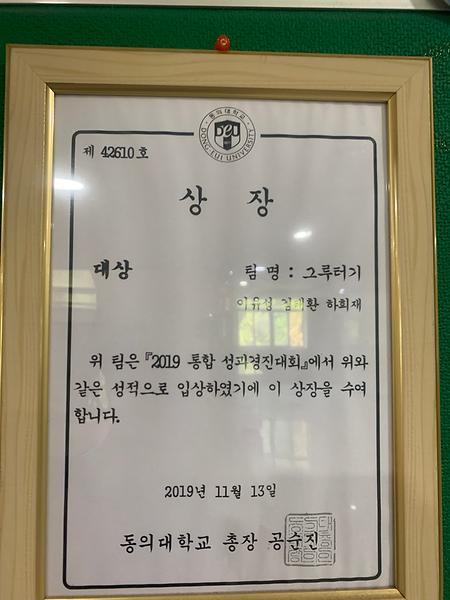 동의대학교
DONG-EUI UNIVERSITY
DEU
제 42610 호
상 장
대상
팀 명 : 그루터기
이유성 김태환 하희재
위 팀은 『2019 통합 성과경진대회』에서 위와
같은 성적으로 입상하였기에 이 상장을 수여
합니다.
2019년 11월 13일
동의대학교 총장 공순진